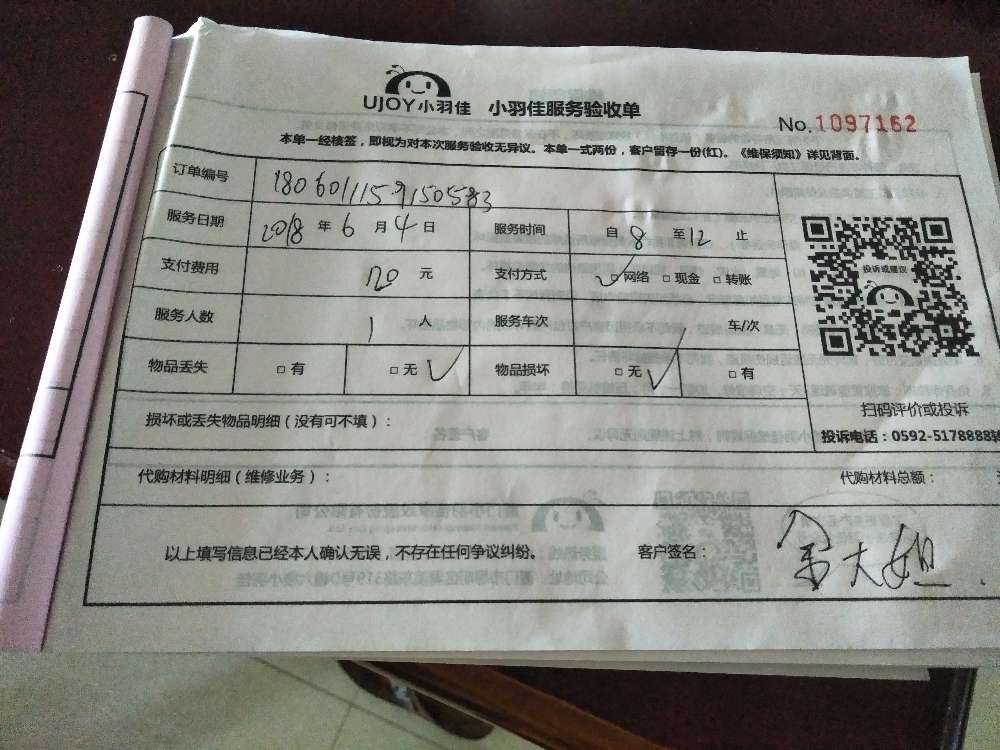 UJOY小羽佳 小羽佳服务验收单
No.1097162
本单一经核签，即视为对本次服务验收无异议。本单一式两份，客户留存一份(红)。《维保须知》详见背面。
订单编号 1806011159150583
服务日期 2018 年 6 月 4 日 服务时间 自 8 至 12 止
支付费用 120 元 支付方式 ☑网络 □现金 □转账
投诉或建议
服务人数 1 人 服务车次 车/次
物品丢失 □有 □无 ✓ 物品损坏 □无 ✓ □有
扫码评价或投诉
损坏或丢失物品明细（没有可不填）：
投诉电话：0592-5178888转
代购材料明细（维修业务）： 代购材料总额：
以上填写信息已经本人确认无误，不存在任何争议纠纷。 客户签名： 大姐